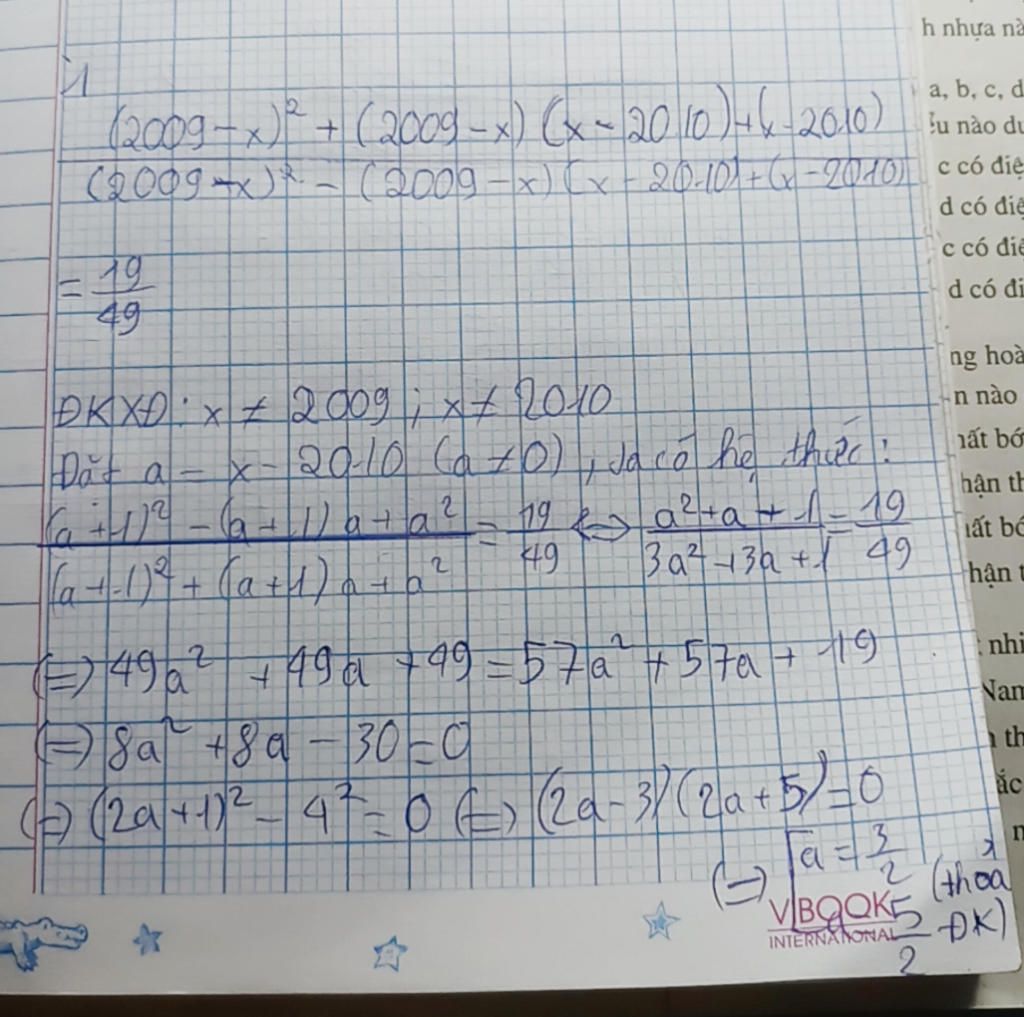 1
(2009-x)² + (2009-x)(x-2010)+(x-2010)
(2009-x)² - (2009-x)(x-2010)+(x-2010)
= 19/49
ĐKXĐ: x ≠ 2009; x ≠ 2010
Đặt a = x - 2010 (a ≠ 0), ta có hệ thức:
(a+1)² - (a+1)a + a² / (a+1)² + (a+1)a + a² = 19/49 ⇔ a²+a+1 / 3a²+3a+1 = 19/49
⇔ 49a² + 49a + 49 = 57a² + 57a + 19
⇔ 8a² + 8a - 30 = 0
⇔ (2a+1)² - 4² = 0 ⇔ (2a-3)(2a+5) = 0
⇔ [a = 3/2
5/2
(thoả ĐK)
VIBOOK
INTERNATIONAL
h nhựa nà
a, b, c, d
c có điệ
d có điệ
c có điệ
d có đi
ng hoà
n nào
hất bớ
hận th
hất bớ
hận t
nhi
Nan
n th
ắc